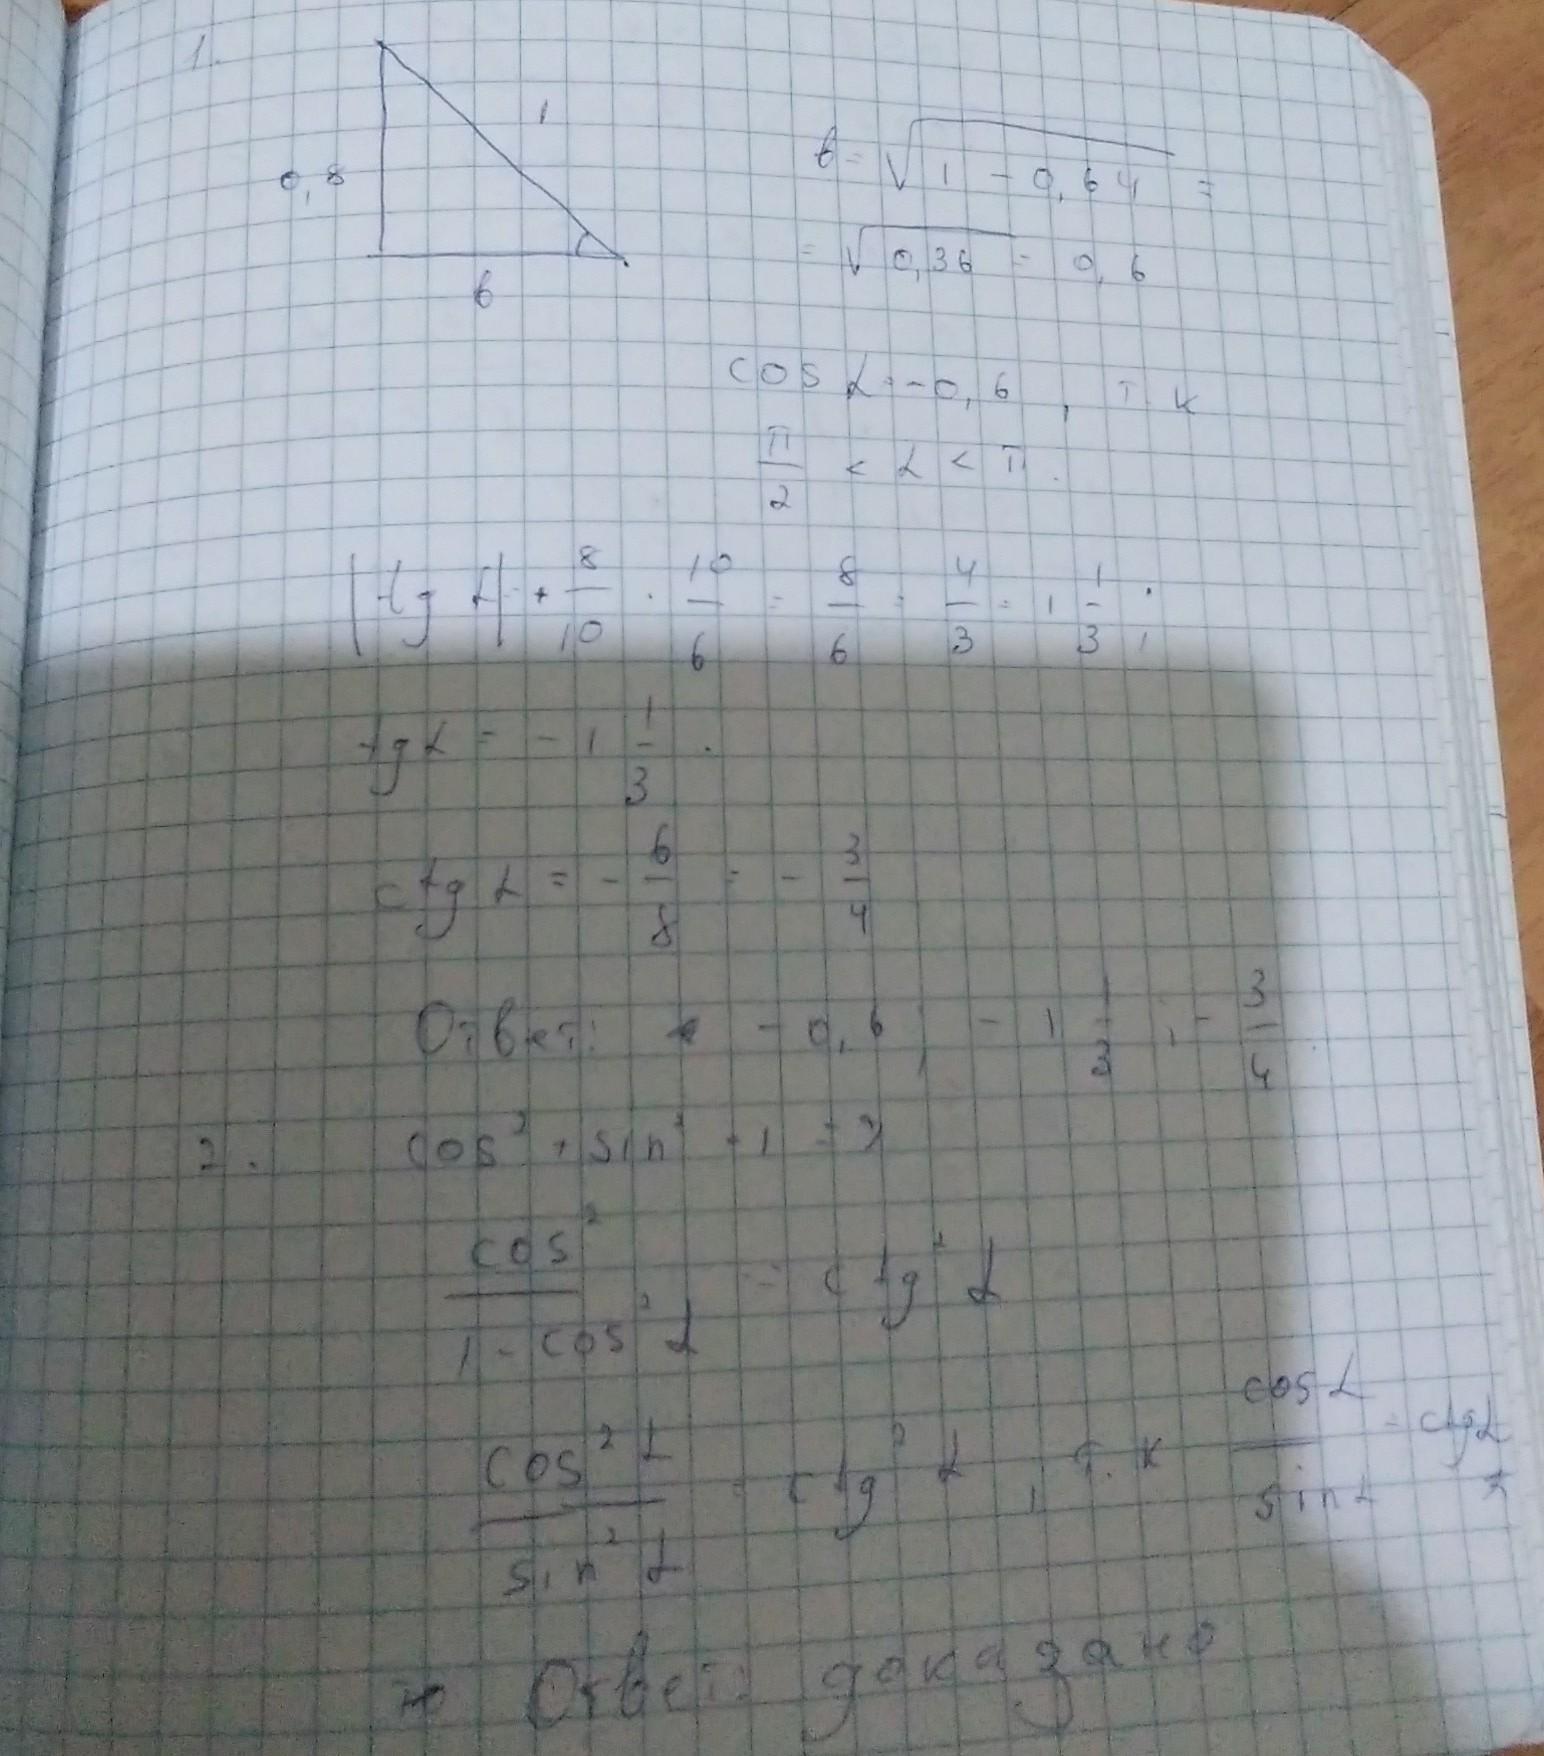 1.
1
0,8
в
в = √(1 - 0,64) =
= √(0,36) = 0,6
cos α = -0,6, т.к
π/2 < α < π.
|tg α| = + 8/10 · 10/6 = 8/6 = 4/3 = 1 1/3;
tg α = - 1 1/3.
ctg α = - 6/8 = - 3/4
Ответ: - 0,6; - 1 1/3; - 3/4.
2.
cos² + sin²
cos² / 1 - cos² α = ctg² α
cos² α / sin² α = ctg² α, т.к cos α / sin α = ctg α
Ответ: доказано